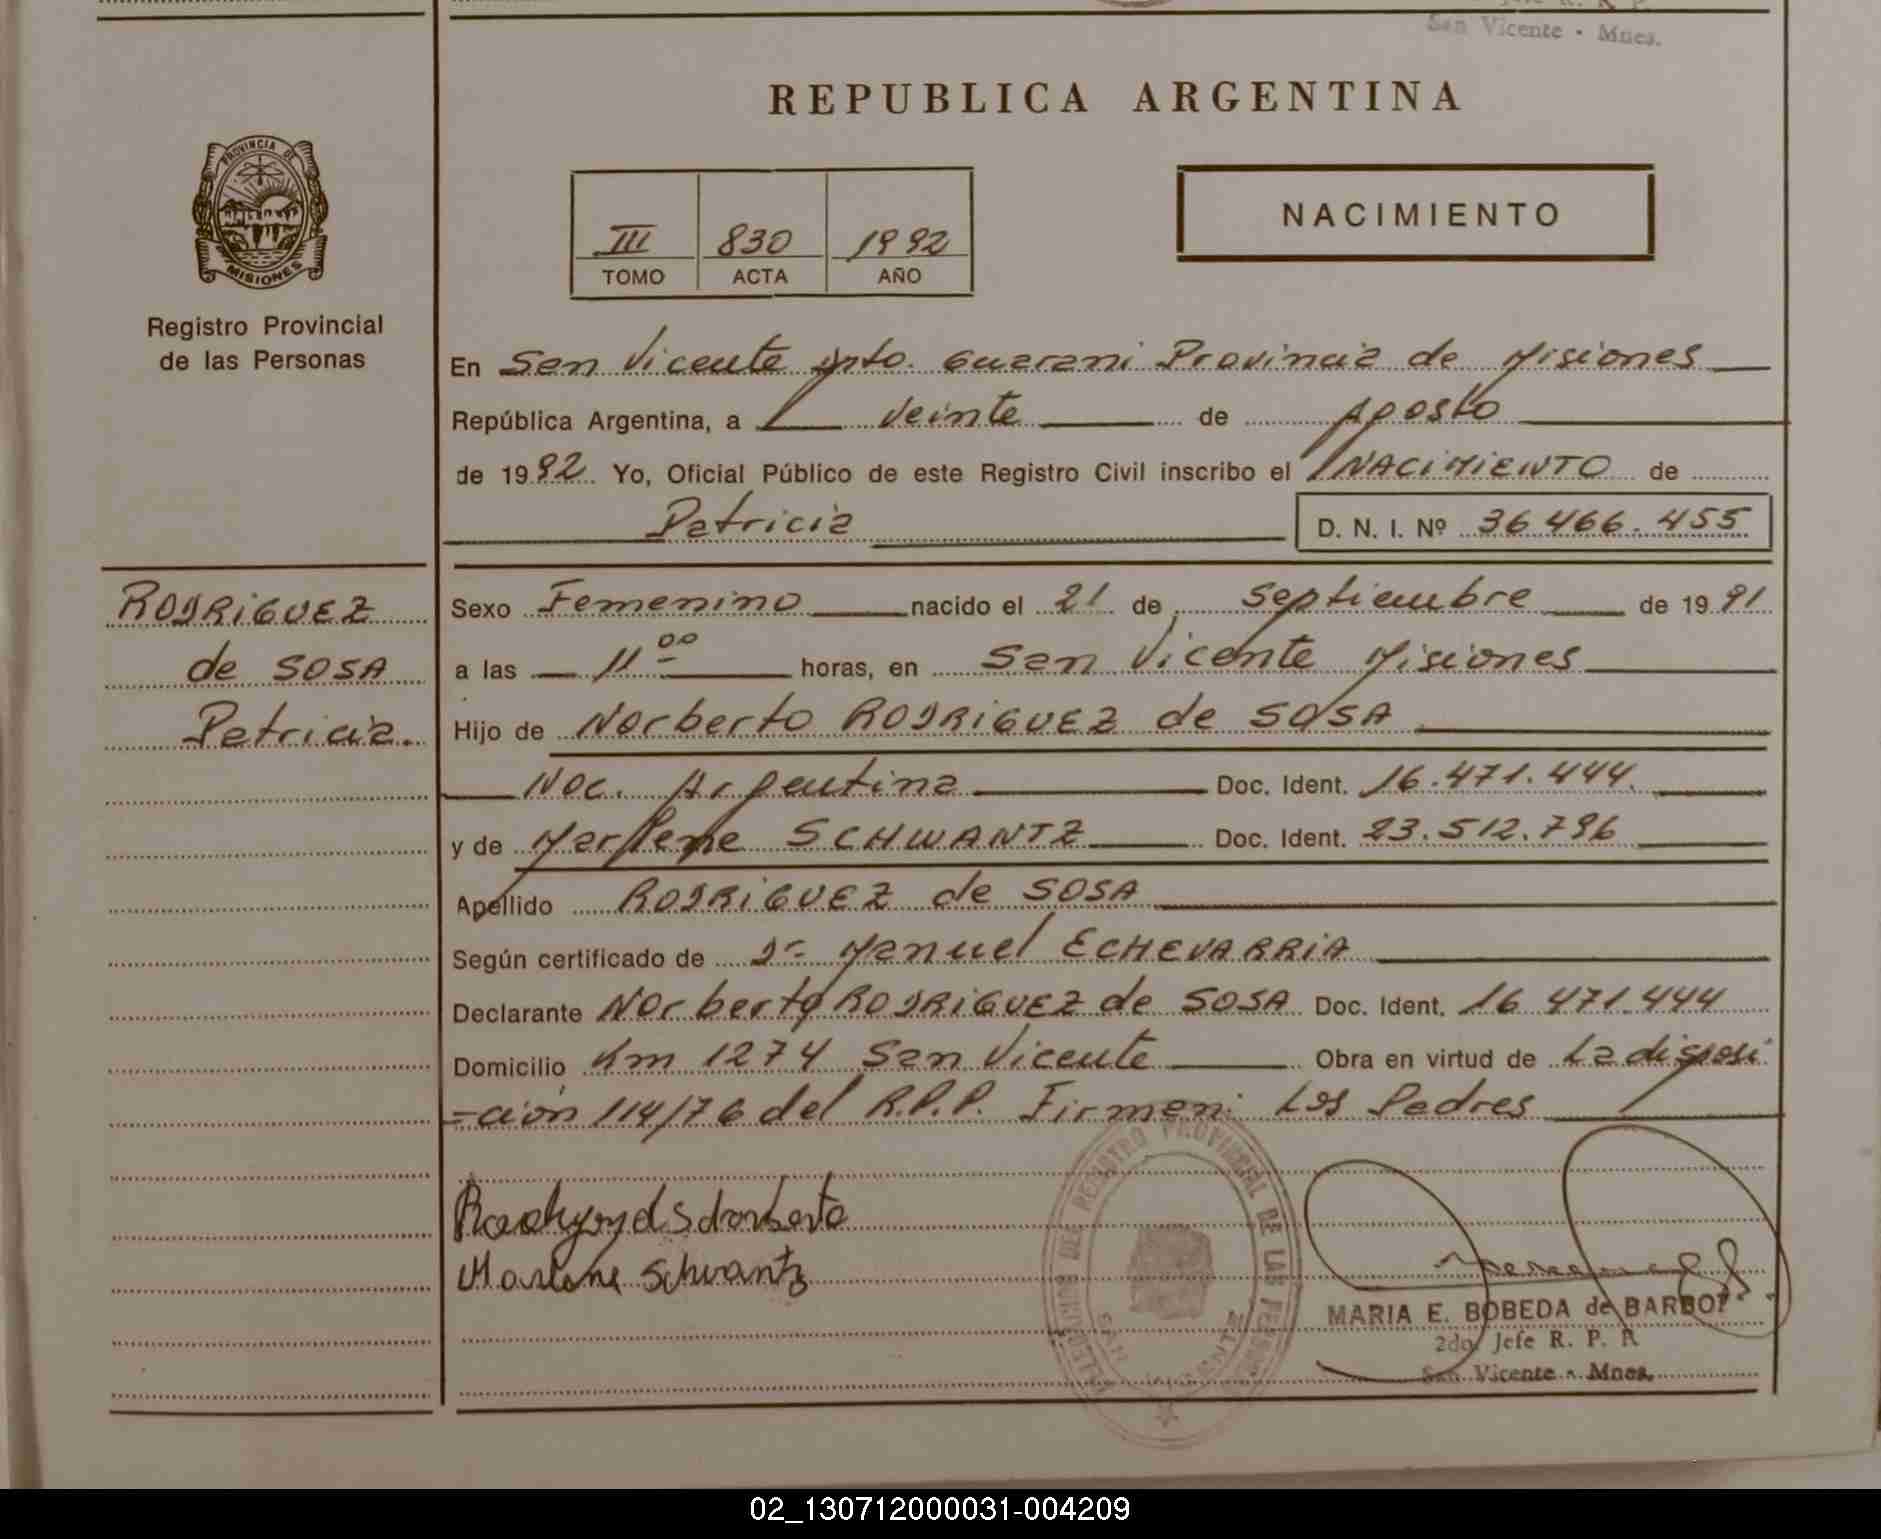 San Vicente - Mnes.
REPUBLICA ARGENTINA
PROVINCIA DE
MISIONES
Registro Provincial
de las Personas
III 830 1992
TOMO ACTA AÑO
NACIMIENTO
En San Vicente Dpto. Guarani Provincia de Misiones
República Argentina, a veinte de Agosto
de 1992. Yo, Oficial Público de este Registro Civil inscribo el NACIMIENTO de
Patricia D. N. I. Nº 36.466.455
RODRIGUEZ
de SOSA
Patricia.
Sexo Femenino nacido el 21 de Septiembre de 1991
a las 11 00 horas, en San Vicente Misiones
Hijo de Norberto RODRIGUEZ de SOSA
Nac. Argentina Doc. Ident. 16.471.444.
y de Marlene SCHWANTZ Doc. Ident. 23.512.796
Apellido RODRIGUEZ de SOSA
Según certificado de Dr Manuel ECHEVARRIA
Declarante Norberto RODRIGUEZ de SOSA Doc. Ident. 16 471.444
Domicilio Km 1274 San Vicente Obra en virtud de La disposi
=ción 114/76 del R.P.P. Firman: Los Padres
Marlene Schwantz
REGISTRO PROVINCIAL DE LAS PERSONAS
SAN VICENTE
MARIA E. BOBEDA de BARBOT
2do. Jefe R. P. P.
San Vicente - Mnes.
02_130712000031-004209